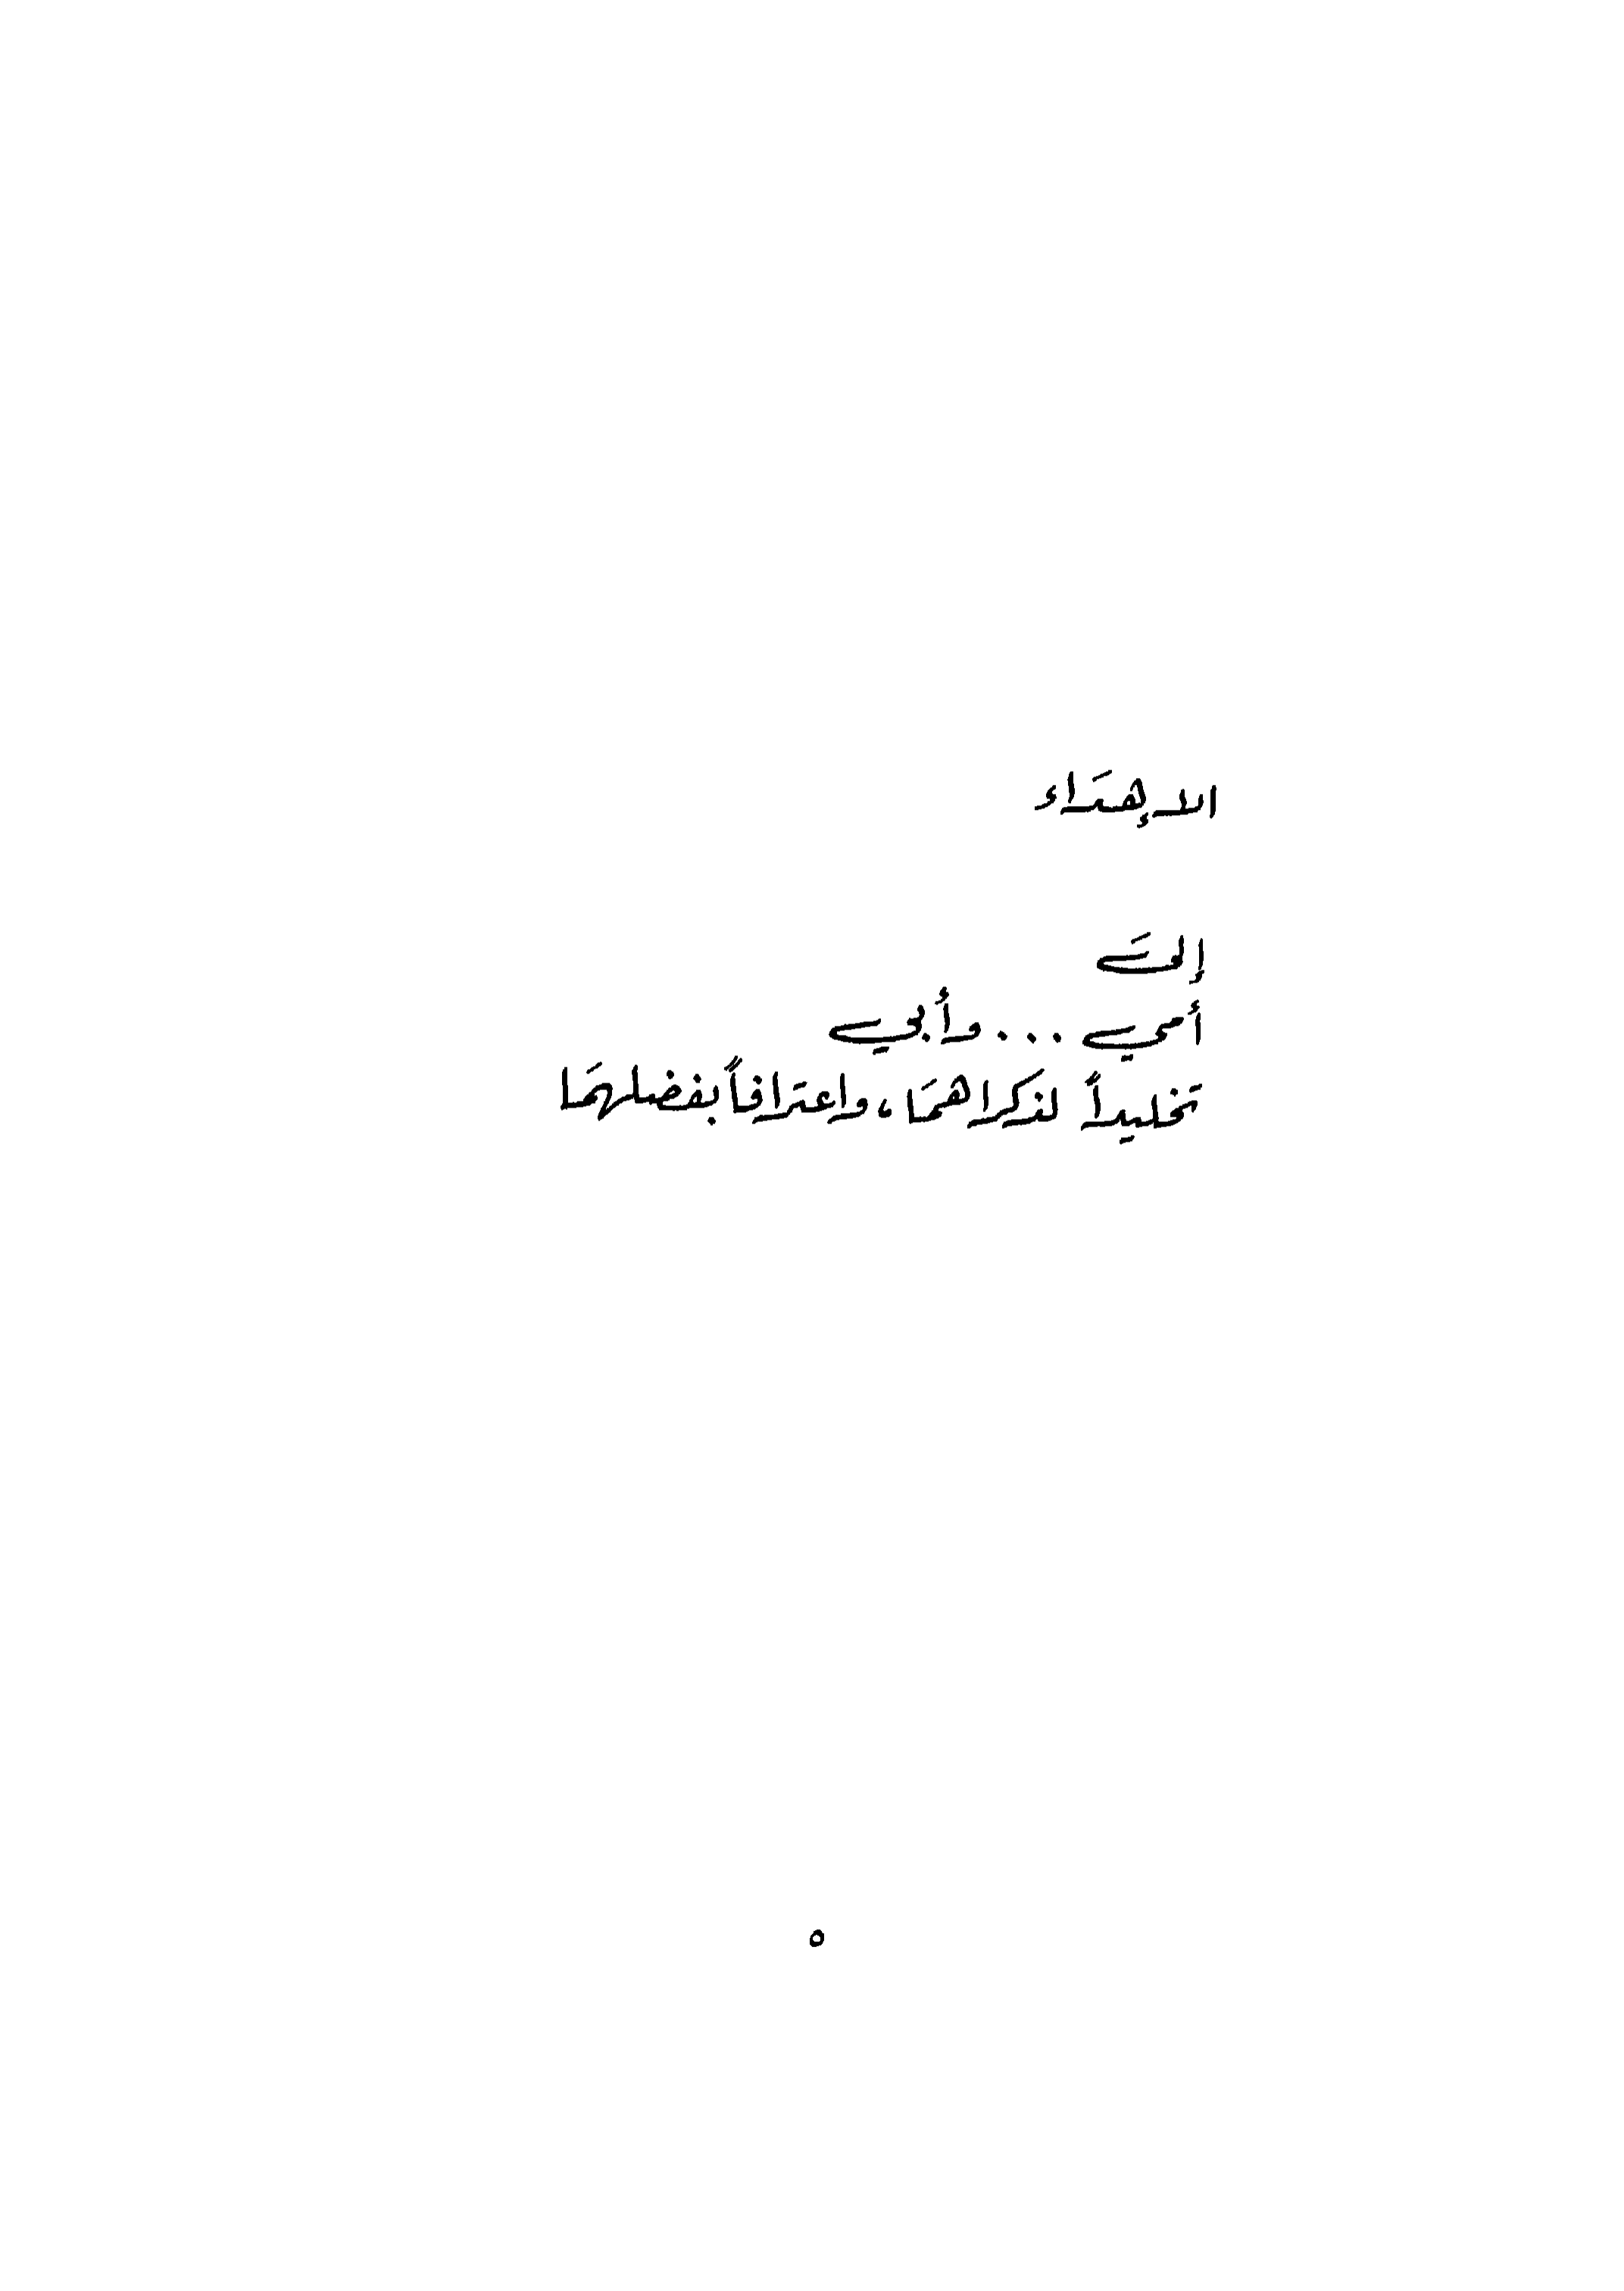 الإهداء
إلى
أمي ... وأبي
تخليداً لذكراهما، واعترافاً بفضلهما
٥